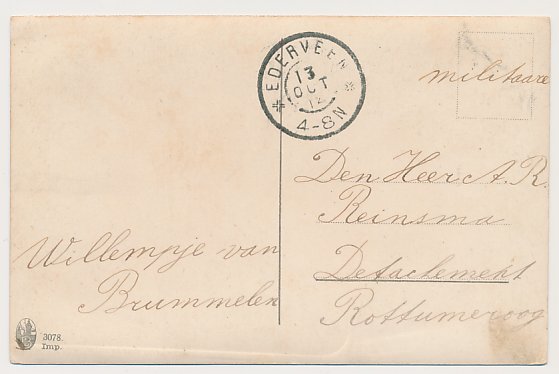 EDERVEEN
13
OCT
12
4-8N
militaire
Den Heer A. R.
Reinsma
Detachement
Rottumeroog
Willempje van
Brummelen
3078.
Imp.